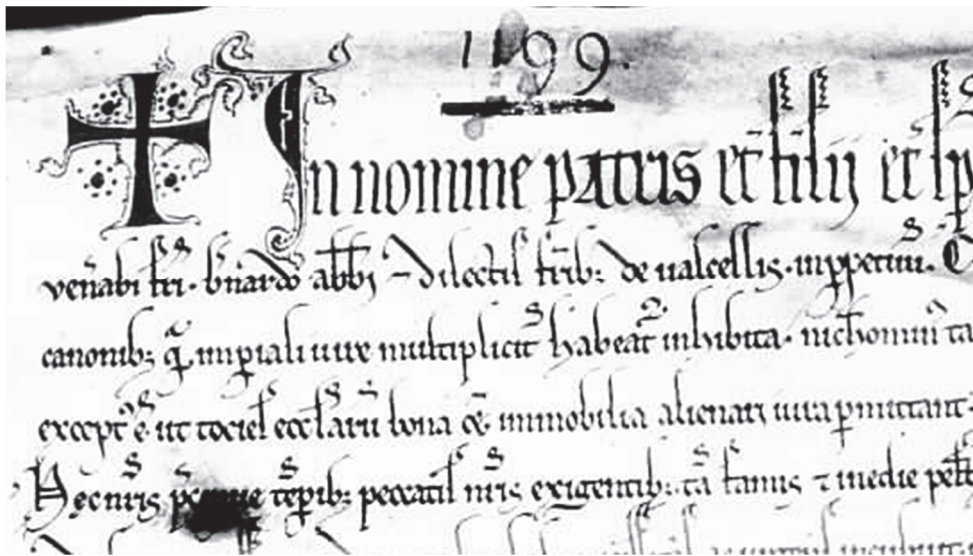 1199.
In nomine patris et filii et sp
ven̄abi fr̄i. b̄nardo abb̄i ⁊ dilectis fr̄ib; de ualcellis. inp̱petuū.
canonib; q̄ inp̱iali iure multiplicit̄ habeāt inhibita. nichomin̄ ta
except̄ ē. ut tociēs eccl̄arū bona ꝙ immobilia alienari iura p̱mittant
Hec nr̄is tēp̱ib; peccatis nr̄is exigentib;. tā famis ⁊ inedie pest